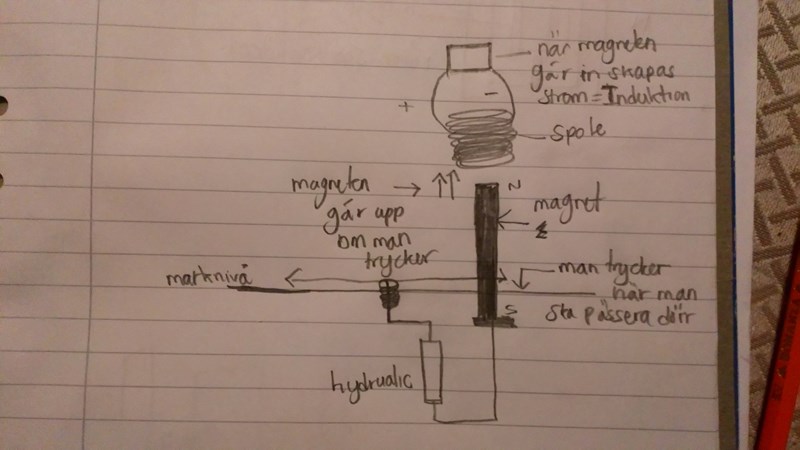 när magneten
går in skapas
ström = Induktion
+
-
spole
magneten
går upp
om man
trycker
N
magnet
marknivå
man trycker
när man
ska passera dörr
S
hydrualic